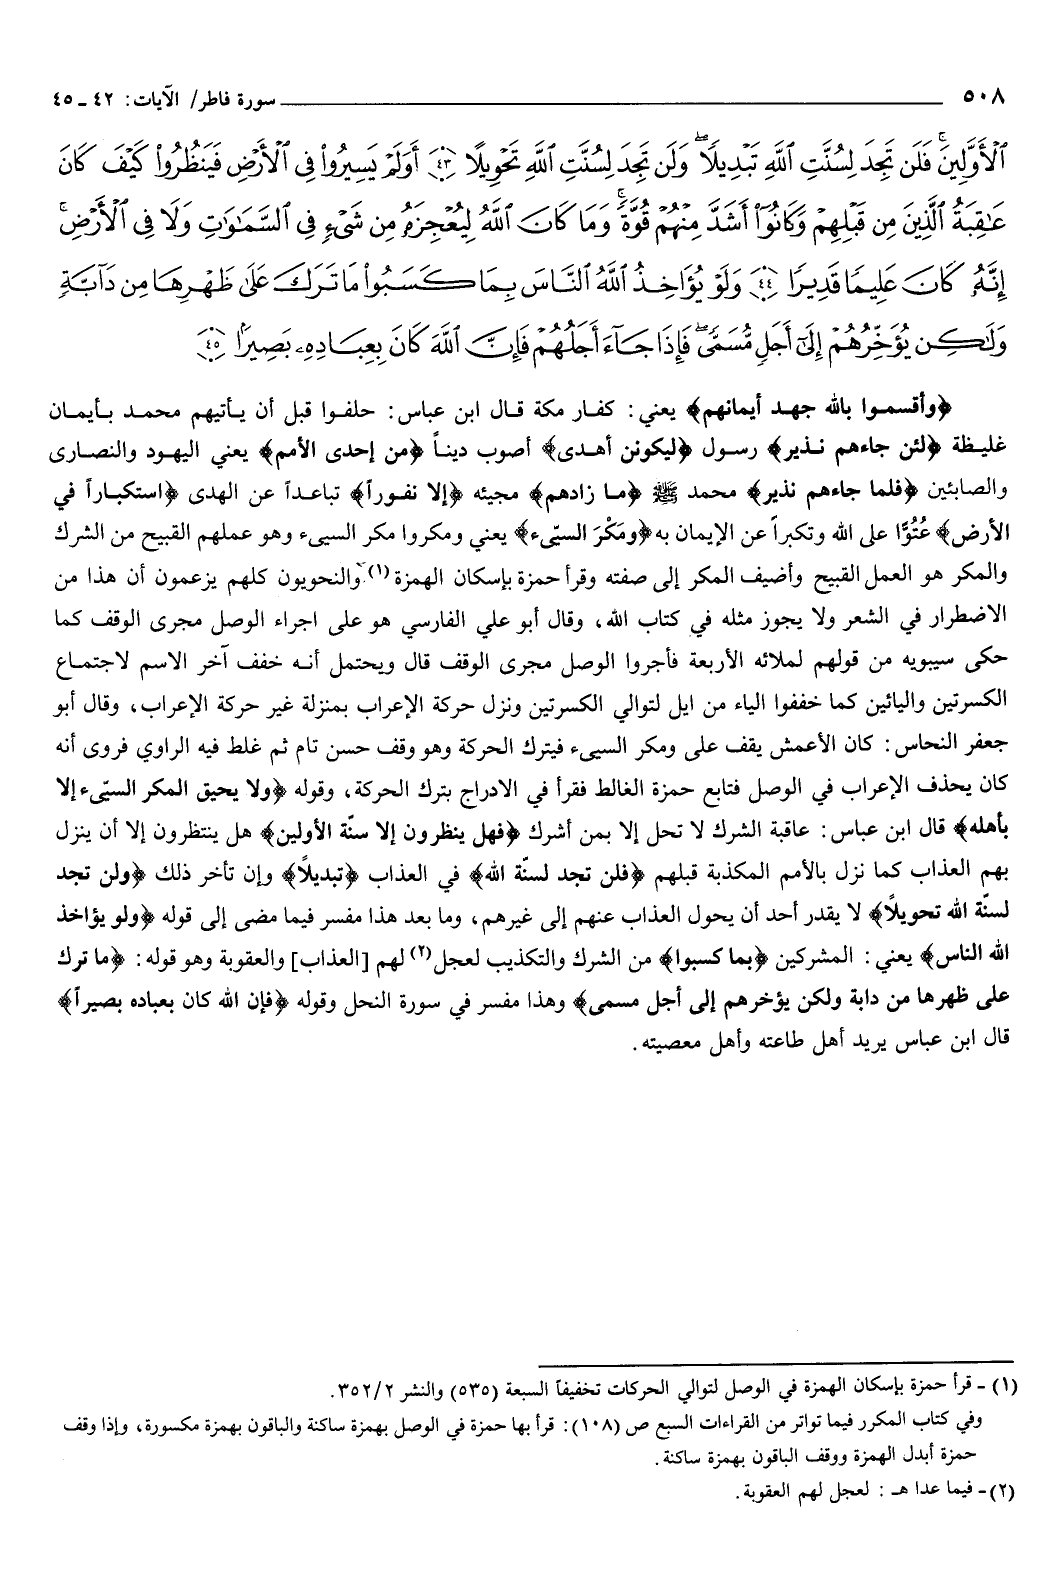 ٥٠٨ سورة فاطر/ الآيات: ٤٢ ـ ٤٥
ٱلْأَوَّلِينَۚ فَلَن تَجِدَ لِسُنَّتِ ٱللَّهِ تَبْدِيلًاۖ وَلَن تَجِدَ لِسُنَّتِ ٱللَّهِ تَحْوِيلًا ﴿٤٣﴾ أَوَلَمْ يَسِيرُوا۟ فِى ٱلْأَرْضِ فَيَنظُرُوا۟ كَيْفَ كَانَ
عَـٰقِبَةُ ٱلَّذِينَ مِن قَبْلِهِمْ وَكَانُوٓا۟ أَشَدَّ مِنْهُمْ قُوَّةًۚ وَمَا كَانَ ٱللَّهُ لِيُعْجِزَهُۥ مِن شَىْءٍ فِى ٱلسَّمَـٰوَٰتِ وَلَا فِى ٱلْأَرْضِۚ
إِنَّهُۥ كَانَ عَلِيمًا قَدِيرًا ﴿٤٤﴾ وَلَوْ يُؤَاخِذُ ٱللَّهُ ٱلنَّاسَ بِمَا كَسَبُوا۟ مَا تَرَكَ عَلَىٰ ظَهْرِهَا مِن دَآبَّةٍ
وَلَـٰكِن يُؤَخِّرُهُمْ إِلَىٰٓ أَجَلٍ مُّسَمًّىۖ فَإِذَا جَآءَ أَجَلُهُمْ فَإِنَّ ٱللَّهَ كَانَ بِعِبَادِهِۦ بَصِيرًۢا ﴿٤٥﴾
﴿وأقسموا بالله جهد أيمانهم﴾ يعني: كفار مكة قال ابن عباس: حلفوا قبل أن يأتيهم محمد بأيمان
غليظة ﴿لئن جاءهم نذير﴾ رسول ﴿ليكونن أهدى﴾ أصوب ديناً ﴿من إحدى الأمم﴾ يعني اليهود والنصارى
والصابئين ﴿فلما جاءهم نذير﴾ محمد ﷺ ﴿ما زادهم﴾ مجيئه ﴿إلا نفوراً﴾ تباعداً عن الهدى ﴿استكباراً في
الأرض﴾ عُتُوًّا على الله وتكبراً عن الإيمان به ﴿ومَكْرَ السيّىء﴾ يعني ومكروا مكر السيىء وهو عملهم القبيح من الشرك
والمكر هو العمل القبيح وأضيف المكر إلى صفته وقرأ حمزة بإسكان الهمزة(١) والنحويون كلهم يزعمون أن هذا من
الاضطرار في الشعر ولا يجوز مثله في كتاب الله، وقال أبو علي الفارسي هو على اجراء الوصل مجرى الوقف كما
حكى سيبويه من قولهم لملائه الأربعة فأجروا الوصل مجرى الوقف قال ويحتمل أنه خفف آخر الاسم لاجتماع
الكسرتين واليائين كما خففوا الياء من ايل لتوالي الكسرتين ونزل حركة الإعراب بمنزلة غير حركة الإعراب، وقال أبو
جعفر النحاس: كان الأعمش يقف على ومكر السيىء فيترك الحركة وهو وقف حسن تام ثم غلط فيه الراوي فروى أنه
كان يحذف الإعراب في الوصل فتابع حمزة الغالط فقرأ في الادراج بترك الحركة، وقوله ﴿ولا يحيق المكر السيّىء إلا
بأهله﴾ قال ابن عباس: عاقبة الشرك لا تحل إلا بمن أشرك ﴿فهل ينظرون إلا سنّة الأولين﴾ هل ينتظرون إلا أن ينزل
بهم العذاب كما نزل بالأمم المكذبة قبلهم ﴿فلن تجد لسنّة الله﴾ في العذاب ﴿تبديلاً﴾ وإن تأخر ذلك ﴿ولن تجد
لسنّة الله تحويلاً﴾ لا يقدر أحد أن يحول العذاب عنهم إلى غيرهم، وما بعد هذا مفسر فيما مضى إلى قوله ﴿ولو يؤاخذ
الله الناس﴾ يعني: المشركين ﴿بما كسبوا﴾ من الشرك والتكذيب لعجل(٢) لهم [العذاب] والعقوبة وهو قوله: ﴿ما ترك
على ظهرها من دابة ولكن يؤخرهم إلى أجل مسمى﴾ وهذا مفسر في سورة النحل وقوله ﴿فإن الله كان بعباده بصيراً﴾
قال ابن عباس يريد أهل طاعته وأهل معصيته.
(١) ـ قرأ حمزة بإسكان الهمزة في الوصل لتوالي الحركات تخفيفاً السبعة (٥٣٥) والنشر ٣٥٢/٢.
وفي كتاب المكرر فيما تواتر من القراءات السبع ص (١٠٨): قرأ بها حمزة في الوصل بهمزة ساكنة والباقون بهمزة مكسورة، وإذا وقف
حمزة أبدل الهمزة ووقف الباقون بهمزة ساكنة.
(٢) ـ فيما عدا هـ: لعجل لهم العقوبة.